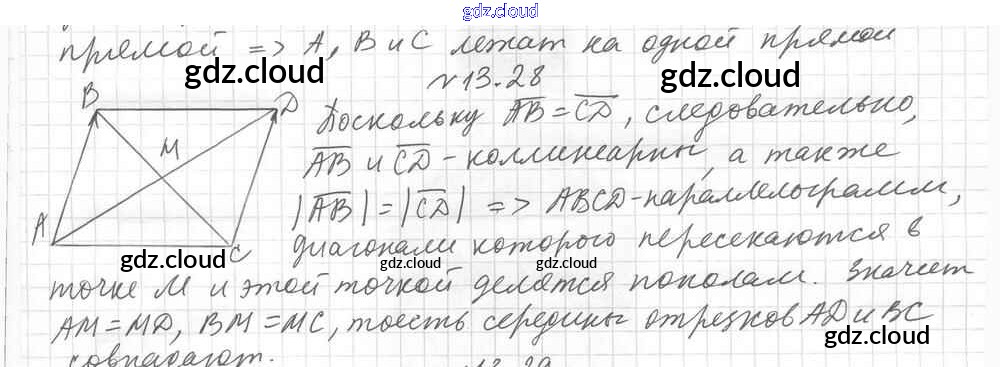 gdz.cloud
прямой => A, B и C лежат на одной прямой
gdz.cloud gdz.cloud
N 13.28
B D
Поскольку AB = CD, следовательно,
M
AB и CD - коллинеарны, а также
A
|AB| = |CD| => ABCD - параллелограмм,
C
диагонали которого пересекаются в
gdz.cloud gdz.cloud gdz.cloud
точке M и этой точкой делятся пополам. Значит
AM = MD, BM = MC, тоесть середины отрезков AD и BC
gdz.cloud
совпадают.
13.29